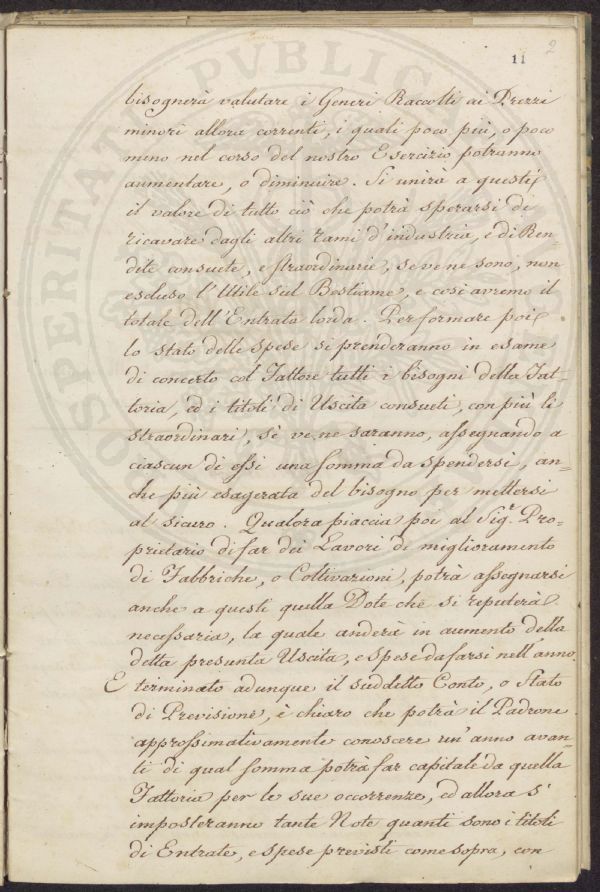 2
11
bisognerà valutare i Generi Raccolti ai Prezzi
minori allora correnti, i quali poco più, o poco
meno nel corso del nostro Esercizio potranno
aumentare, o diminuire. Si unirà a questi
il valore di tutto ciò che potrà sperarsi di
ricavare dagli altri rami d'industria, e di Ren-
dite consuete, e straordinarie, se ve ne sono, non
escluso l'Utile sul Bestiame, e così avremo il
totale dell'Entrata lorda. Per formare poi
lo stato delle spese si prenderanno in esame
di concerto col Fattore tutti i bisogni della Fat-
toria, ed i titoli di Uscita consueti, con più li
straordinari, se ve ne saranno, assegnando a
ciascun di essi una somma da spendersi, an=
che più esagerata del bisogno per mettersi
al sicuro. Qualora piaccia poi al Sig.e Pro=
prietario di far dei Lavori di miglioramento
di Fabbriche, o Coltivazioni, potrà assegnarsi
anche a questi quella Dote che si reputerà
necessaria, la quale anderà in aumento della
detta presunta Uscita, e spese da farsi nell'anno.
E terminato adunque il suddetto Conto, o Stato
di Previsione, è chiaro che potrà il Padrone
approssimativamente conoscere un'anno avan=
ti di qual somma potrà far capitale da quella
Fattoria per le sue occorrenze, ed allora s'
imposteranno tante Note quanti sono i titoli
di Entrate, e spese previsti come sopra, con
PROSPERITATI PVBLICAE